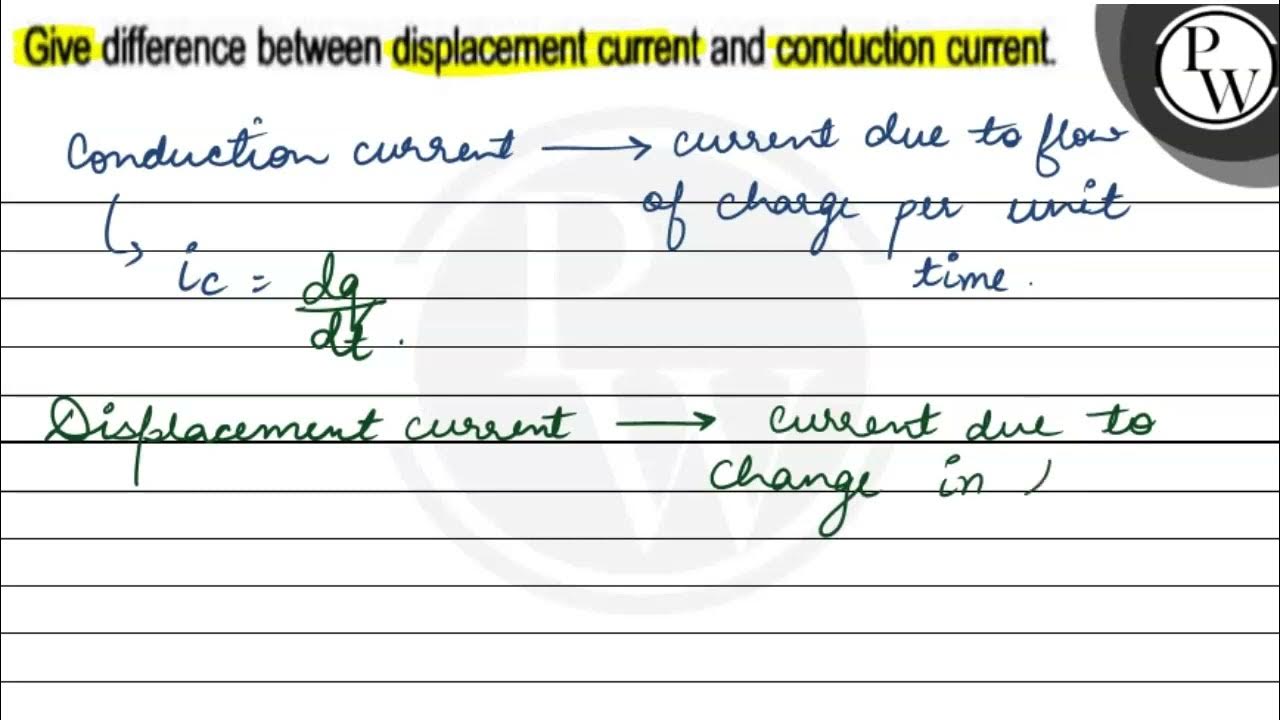 Give difference between displacement current and conduction current.
PW
Conduction current → current due to flow
of charge per unit
time.
ic = dq/dt.
Displacement current → current due to
change in